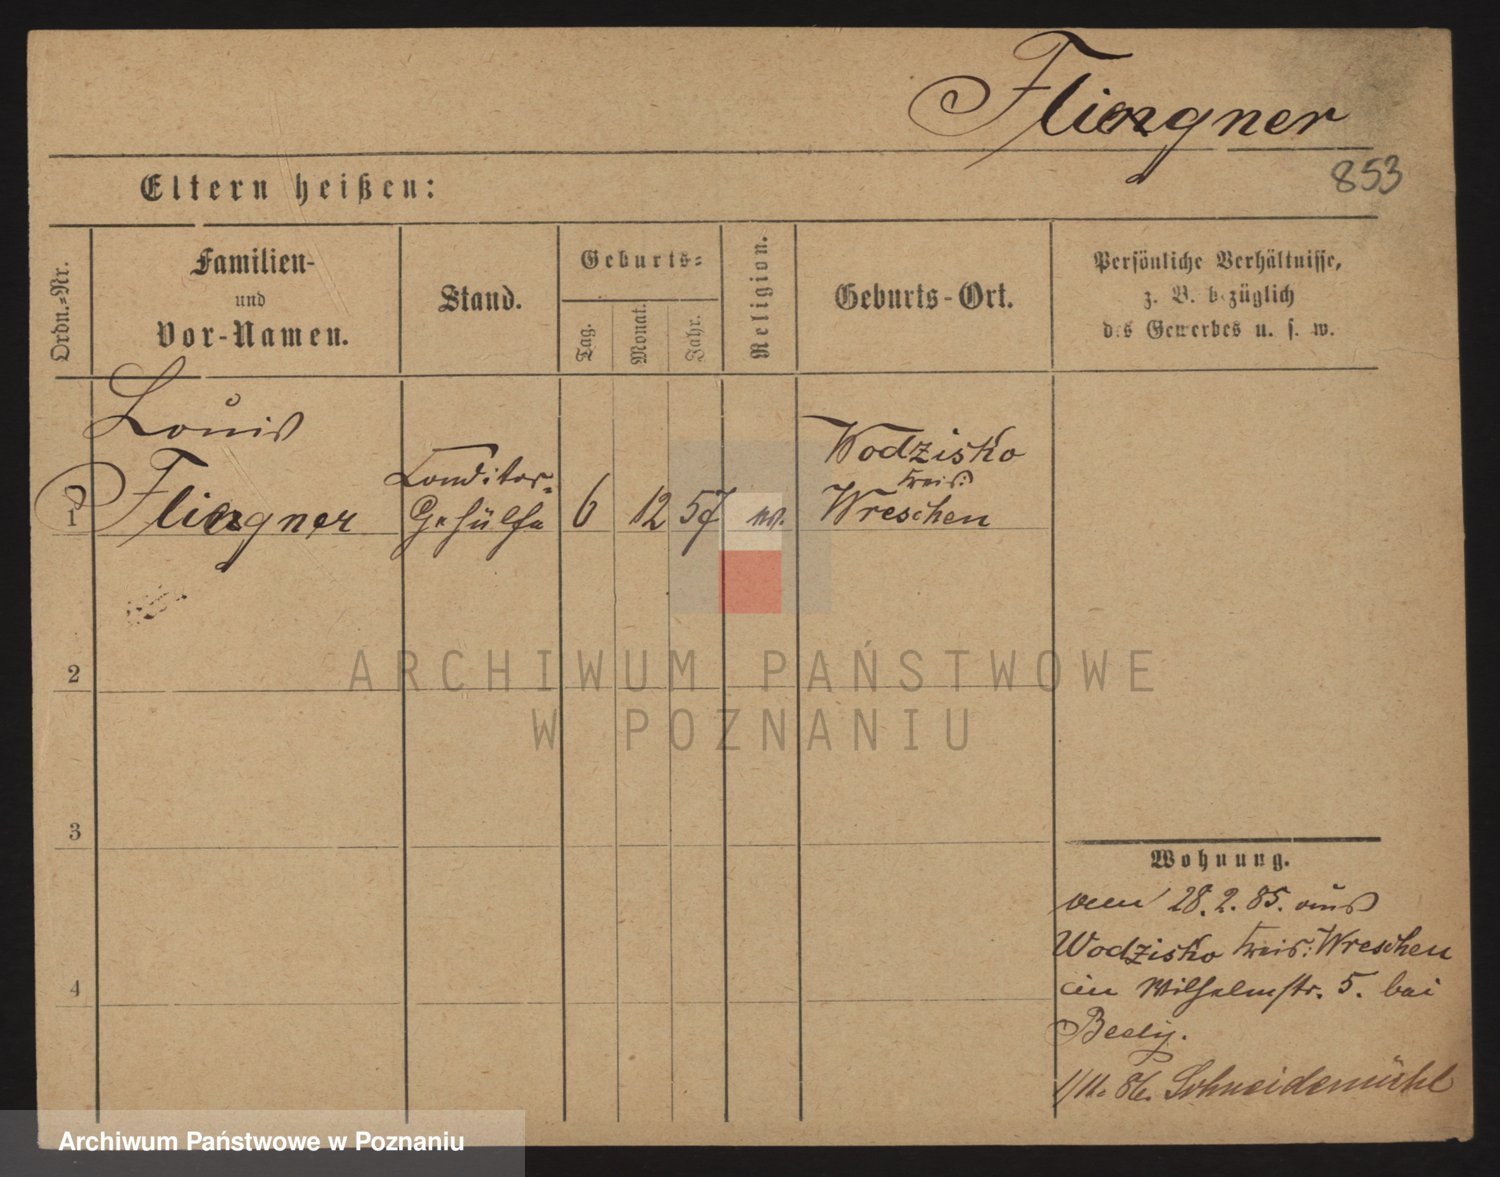 Fliegner
853
Eltern heißen:
Ordn.-Nr.
Familien-
und
Vor-Namen.
Stand.
Geburts-
Tag.
Monat.
Jahr.
Religion.
Geburts-Ort.
Persönliche Verhältnisse,
z. B. bezüglich
des Gewerbes u. s. w.
Louis
1 Fliegner
Conditor-
Gehülfe
6 12 57
Wodzisko
Kreis:
Wreschen
2
3
4
ARCHIWUM PAŃSTWOWE
W POZNANIU
Wohnung.
28.2.85. aus
Wodzisko Kreis: Wreschen
in Wilhelmstr. 5. bei
Beely.
1/11. 86. Schneidemühl
Archiwum Państwowe w Poznaniu